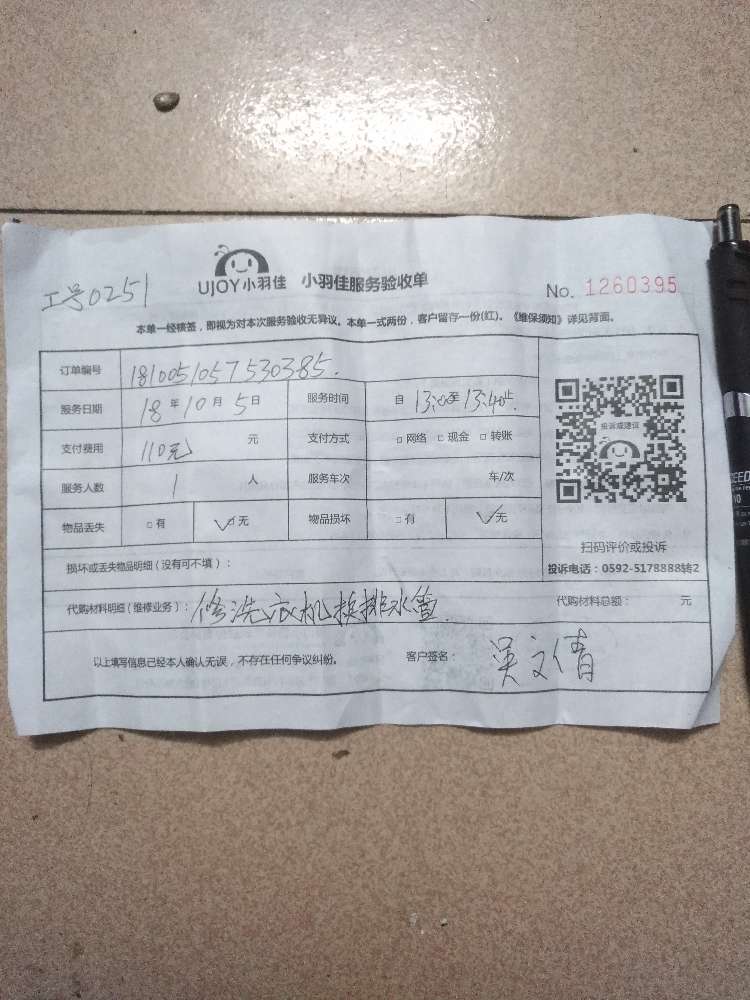 工号0251
UJOY小羽佳 小羽佳服务验收单
No. 1260395
本单一经核签，即视为对本次服务验收无异议。本单一式两份，客户留存一份(红)。《维保须知》详见背面。
订单编号 1810051057530385.
服务日期 18年10月5日 服务时间 自13:00至13:40止
支付费用 110元 元 支付方式 □网络 □现金 □转账
服务人数 1 人 服务车次 车/次
物品丢失 □有 ☑无 物品损坏 □有 ☑无
投诉或建议
扫码评价或投诉
投诉电话：0592-5178888转2
损坏或丢失物品明细（没有可不填）：
代购材料明细（维修业务）：修洗衣机换排水管. 代购材料总额： 元
以上填写信息已经本人确认无误，不存在任何争议纠纷。 客户签名： 吴文倩